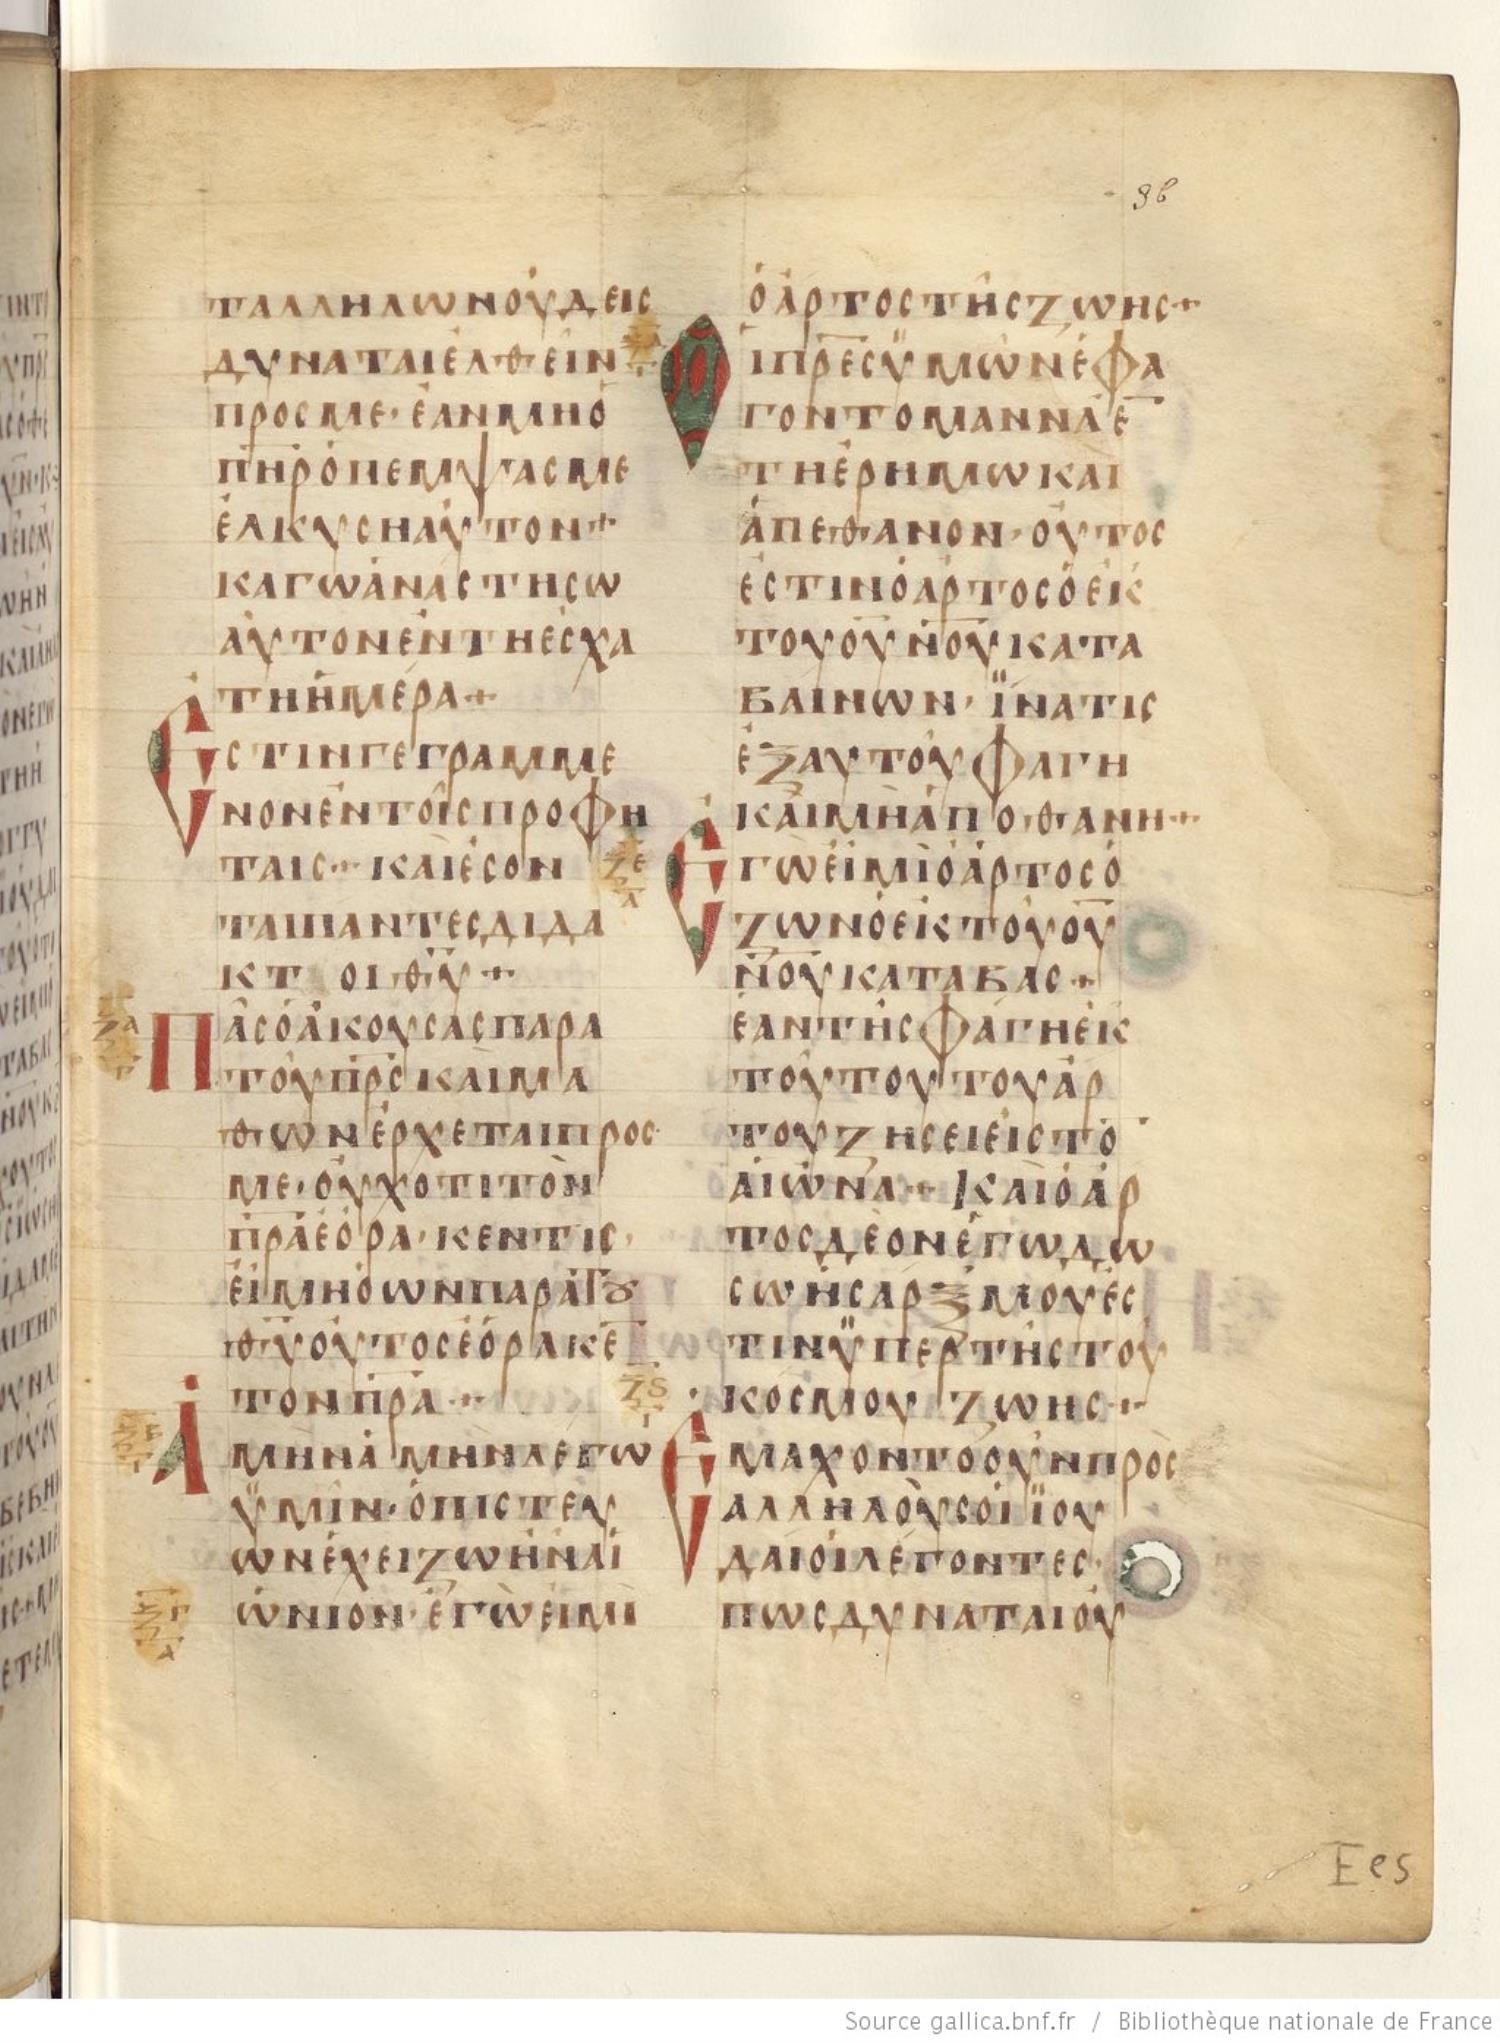 98
ΤΑΛΛΗΛΩΝΟΥΔΕΙϹ
ΔΥΝΑΤΑΙΕΛΘΕΙΝ
ΠΡΟϹΜΕ·ΕΑΝΜΗΟ
ΠΗΡΟΠΕΜΨΑϹΜΕ
ΕΛΚΥϹΗΑΥΤΟΝ+
ΚΑΓΩΑΝΑϹΤΗϹΩ
ΑΥΤΟΝΕΝΤΗΕϹΧΑ
ΤΗΗΜΕΡΑ+
ΕϹΤΙΝΓΕΓΡΑΜΜΕ
ΝΟΝΕΝΤΟΙϹΠΡΟΦΗ
ΤΑΙϹ+ΚΑΙΕϹΟΝ
ΤΑΙΠΑΝΤΕϹΔΙΔΑ
ΚΤΟΙΘΥ+
ΠΑϹΟΑΚΟΥϹΑϹΠΑΡΑ
ΤΟΥΠΡϹΚΑΙΜΑ
ΘΩΝΕΡΧΕΤΑΙΠΡΟϹ
ΜΕ·ΟΥΧΟΤΙΤΟΝ
ΠΡΑΕΟΡΑ·ΚΕΝΤΙϹ·
ΕΙΜΗΟΩΝΠΑΡΑΤȢ
ΘΥΟΥΤΟϹΕΟΡΑΚΕ̅
ΤΟΝΠΡΑ+
ΑΜΗΝΑΜΗΝΛΕΓΩ
ΥΜΙΝ·ΟΠΙϹΤΕΥ
ΩΝΕΧΕΙΖΩΗΝΑΙ
ΩΝΙΟΝ·ΕΓΩΕΙΜΙ
ΟΑΡΤΟϹΤΗϹΖΩΗϹ+
ΟΙΠΡΕϹΫΜΩΝΕΦΑ
ΓΟΝΤΟΜΑΝΝΑΕ̅
ΤΗΕΡΗΜΩΚΑΙ
ΑΠΕΘΑΝΟΝ·ΟΥΤΟϹ
ΕϹΤΙΝΟΑΡΤΟϹΟΕΚ
ΤΟΥΟΥΝΟΥΚΑΤΑ
ΒΑΙΝΩΝ·ΪΝΑΤΙϹ
ΕΞΑΥΤΟΥΦΑΓΗ
ΚΑΙΜΗΑΠΟΘΑΝΗ+
ΕΓΩΕΙΜΙΟΑΡΤΟϹΟ
ΖΩΝΟΕΚΤΟΥΟΥ
ΝΟΥΚΑΤΑΒΑϹ+
ΕΑΝΤΗϹΦΑΓΗΕΚ
ΤΟΥΤΟΥΤΟΥΑΡ
ΤΟΥΖΗϹΕΙΕΙϹΤΟ̅
ΑΙΩΝΑ+ΚΑΙΟΑΡ
ΤΟϹΔΕΟΝΕΓΩΔΩ
ϹΩΗϹΑΡΞΜΟΥΕϹ
ΤΙΝΫΠΕΡΤΗϹΤΟΥ
ΚΟϹΜΟΥΖΩΗϹ+
ΕΜΑΧΟΝΤΟΟΥΝΠΡΟϹ
ΑΛΛΗΛΟΥϹΟΙΪΟΥ
ΔΑΙΟΙΛΕΓΟΝΤΕϹ·
ΠΩϹΔΥΝΑΤΑΙΟΥ
Source gallica.bnf.fr / Bibliothèque nationale de France